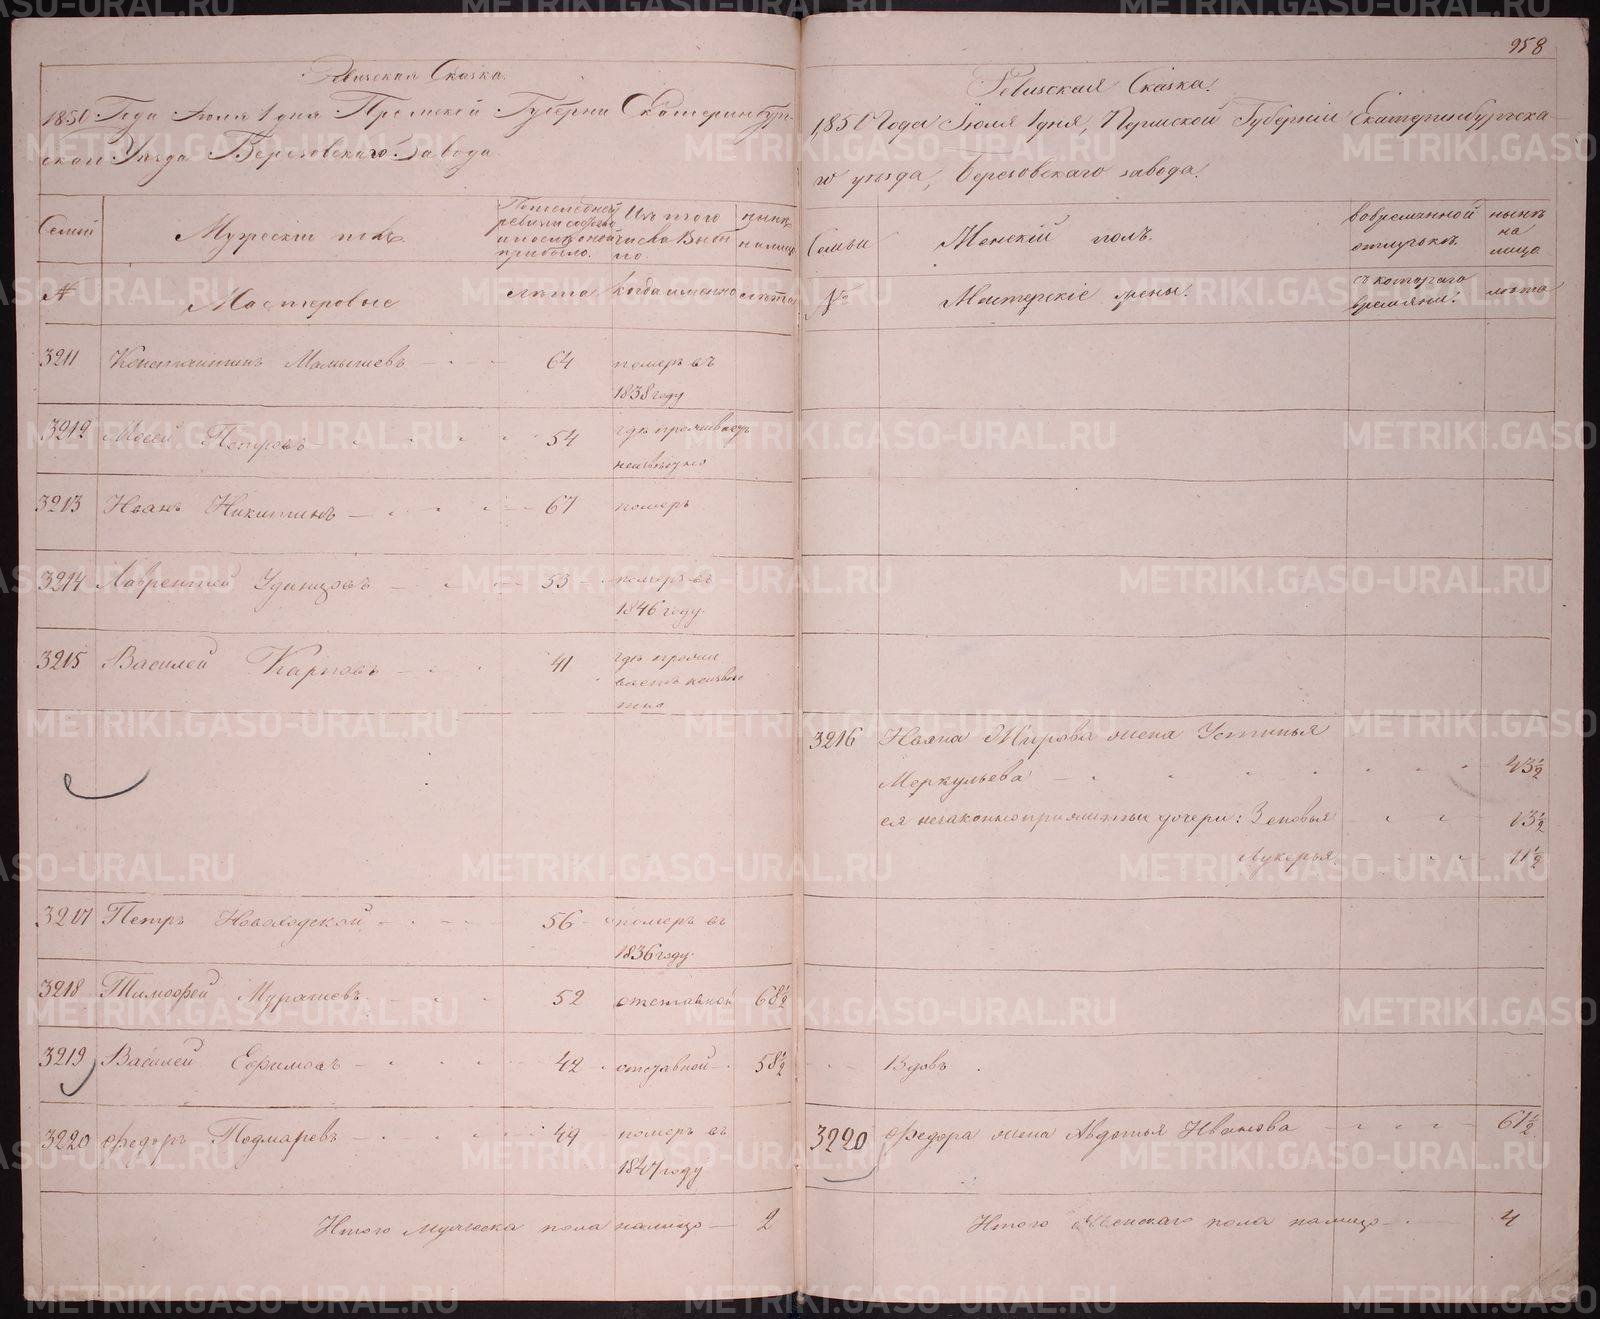 Ревизская Сказка.
1850 Года Июля 1 дня Пермской Губерни Екатеринбур-
скаго Уезда Березовскаго Завода
Семьи
Мужескiй полъ.
Последней
ревизiи состояло
и после оной
прибыло.
Изъ того
числа выбы
ло.
нынѣ
на лицо
№
Мастеровые
лѣта
когда именно
лѣта
3211 Константинъ Мамышевъ 64 померъ въ
1838 году
3212 Мосей Петровъ 54 гдѣ проживаетъ
неизвѣстно
3213 Иванъ Никитинъ 67 померъ
3214 Лаврентей Удинцовъ 53 померъ въ
1846 году.
3215 Василей Карповъ 41 гдѣ прожи
ваетъ неизвѣс
тно
3217 Петръ 56 померъ въ
1836 году.
3218 Тимофей Мурашевъ 52 отставной 68½
3219 Василей Ефимовъ 42 отставной 58½
3220 Федоръ 49 померъ въ
1847 году
Итого мужеска пола налицо 2
958
Ревизская Сказка.
1850 Года Iюля 1 дня, Пермской Губернiи Екатеринбургска-
го уѣзда, Березовскаго завода.
Семьи
Женскiй полъ.
во временной
отлучкѣ
нынѣ
на
лицо
№
Мастерскiе жены.
съ котораго
времяни.
лѣта
3216 Ивана жена Устинья
Меркульева 43½
ея незаконноприжитыя дочери: Зеновья 13½
Лукерья. 11½
Вдовъ.
3220 Федора жена Авдотья Иванова 61½
Итого женскаго пола налицо 4
METRIKI.GASO-URAL.RU